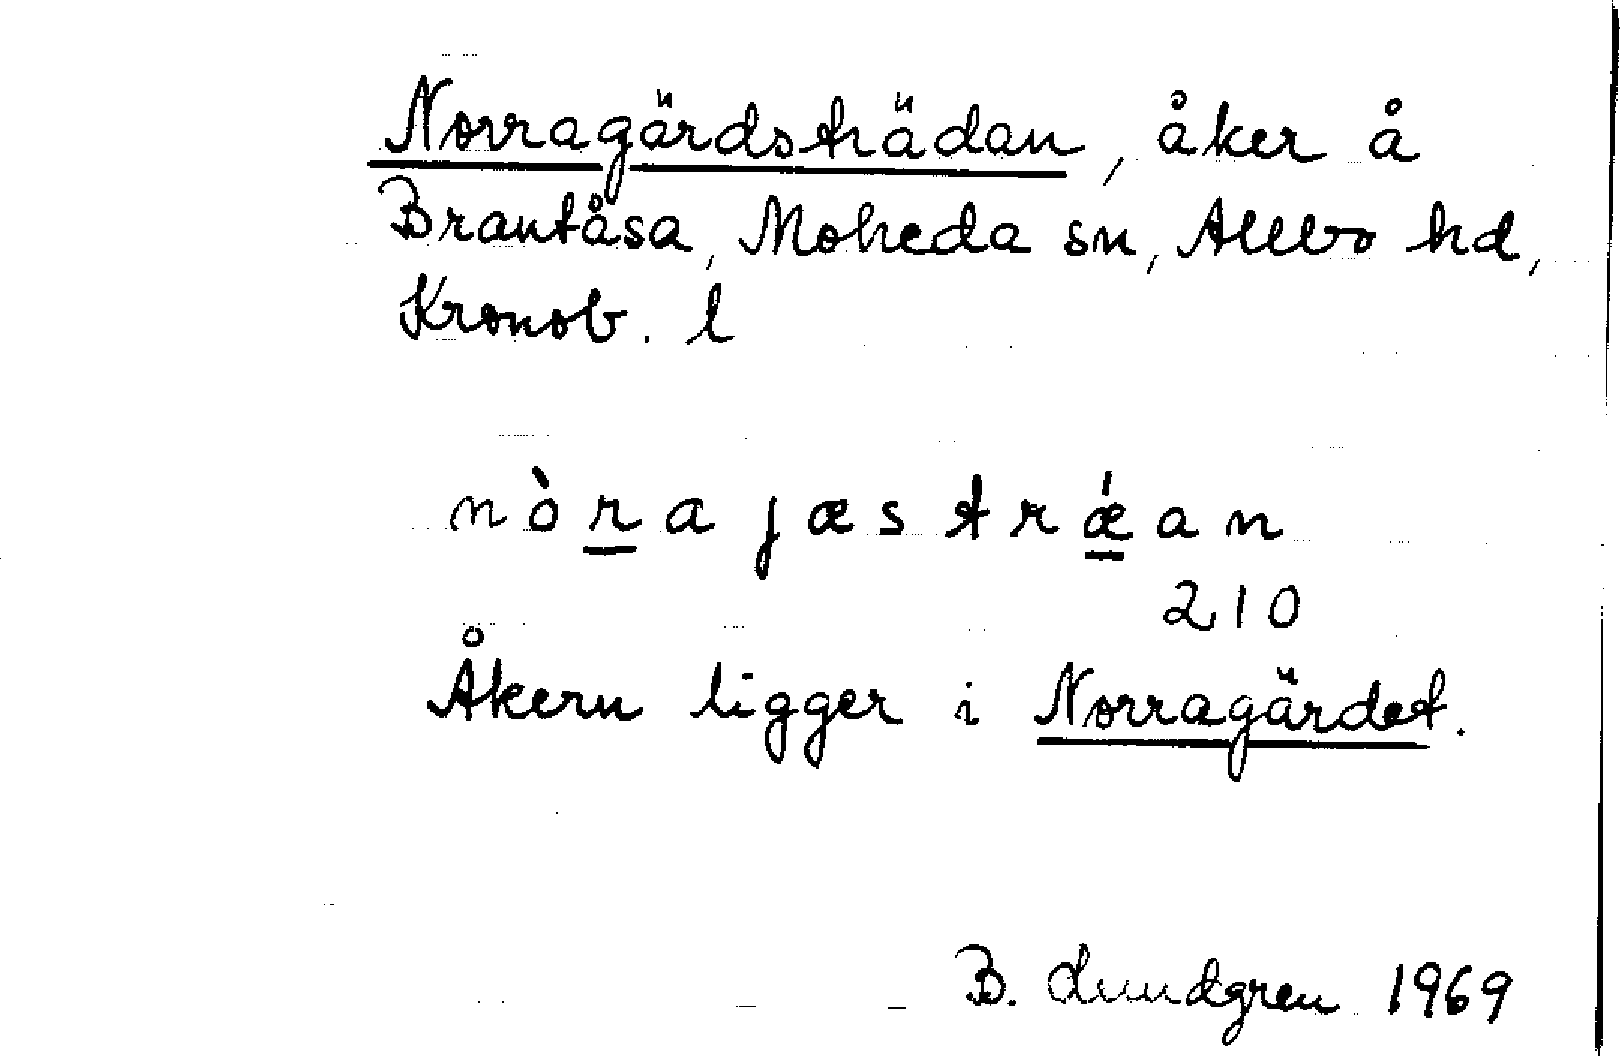 Norragärdsträdan, åker å
Brantåsa, Moheda sn, Allbo hd,
Kronob. l
nòrajæstrǽan
210
Åkern ligger i Norragärdet.
B. Lundgren 1969